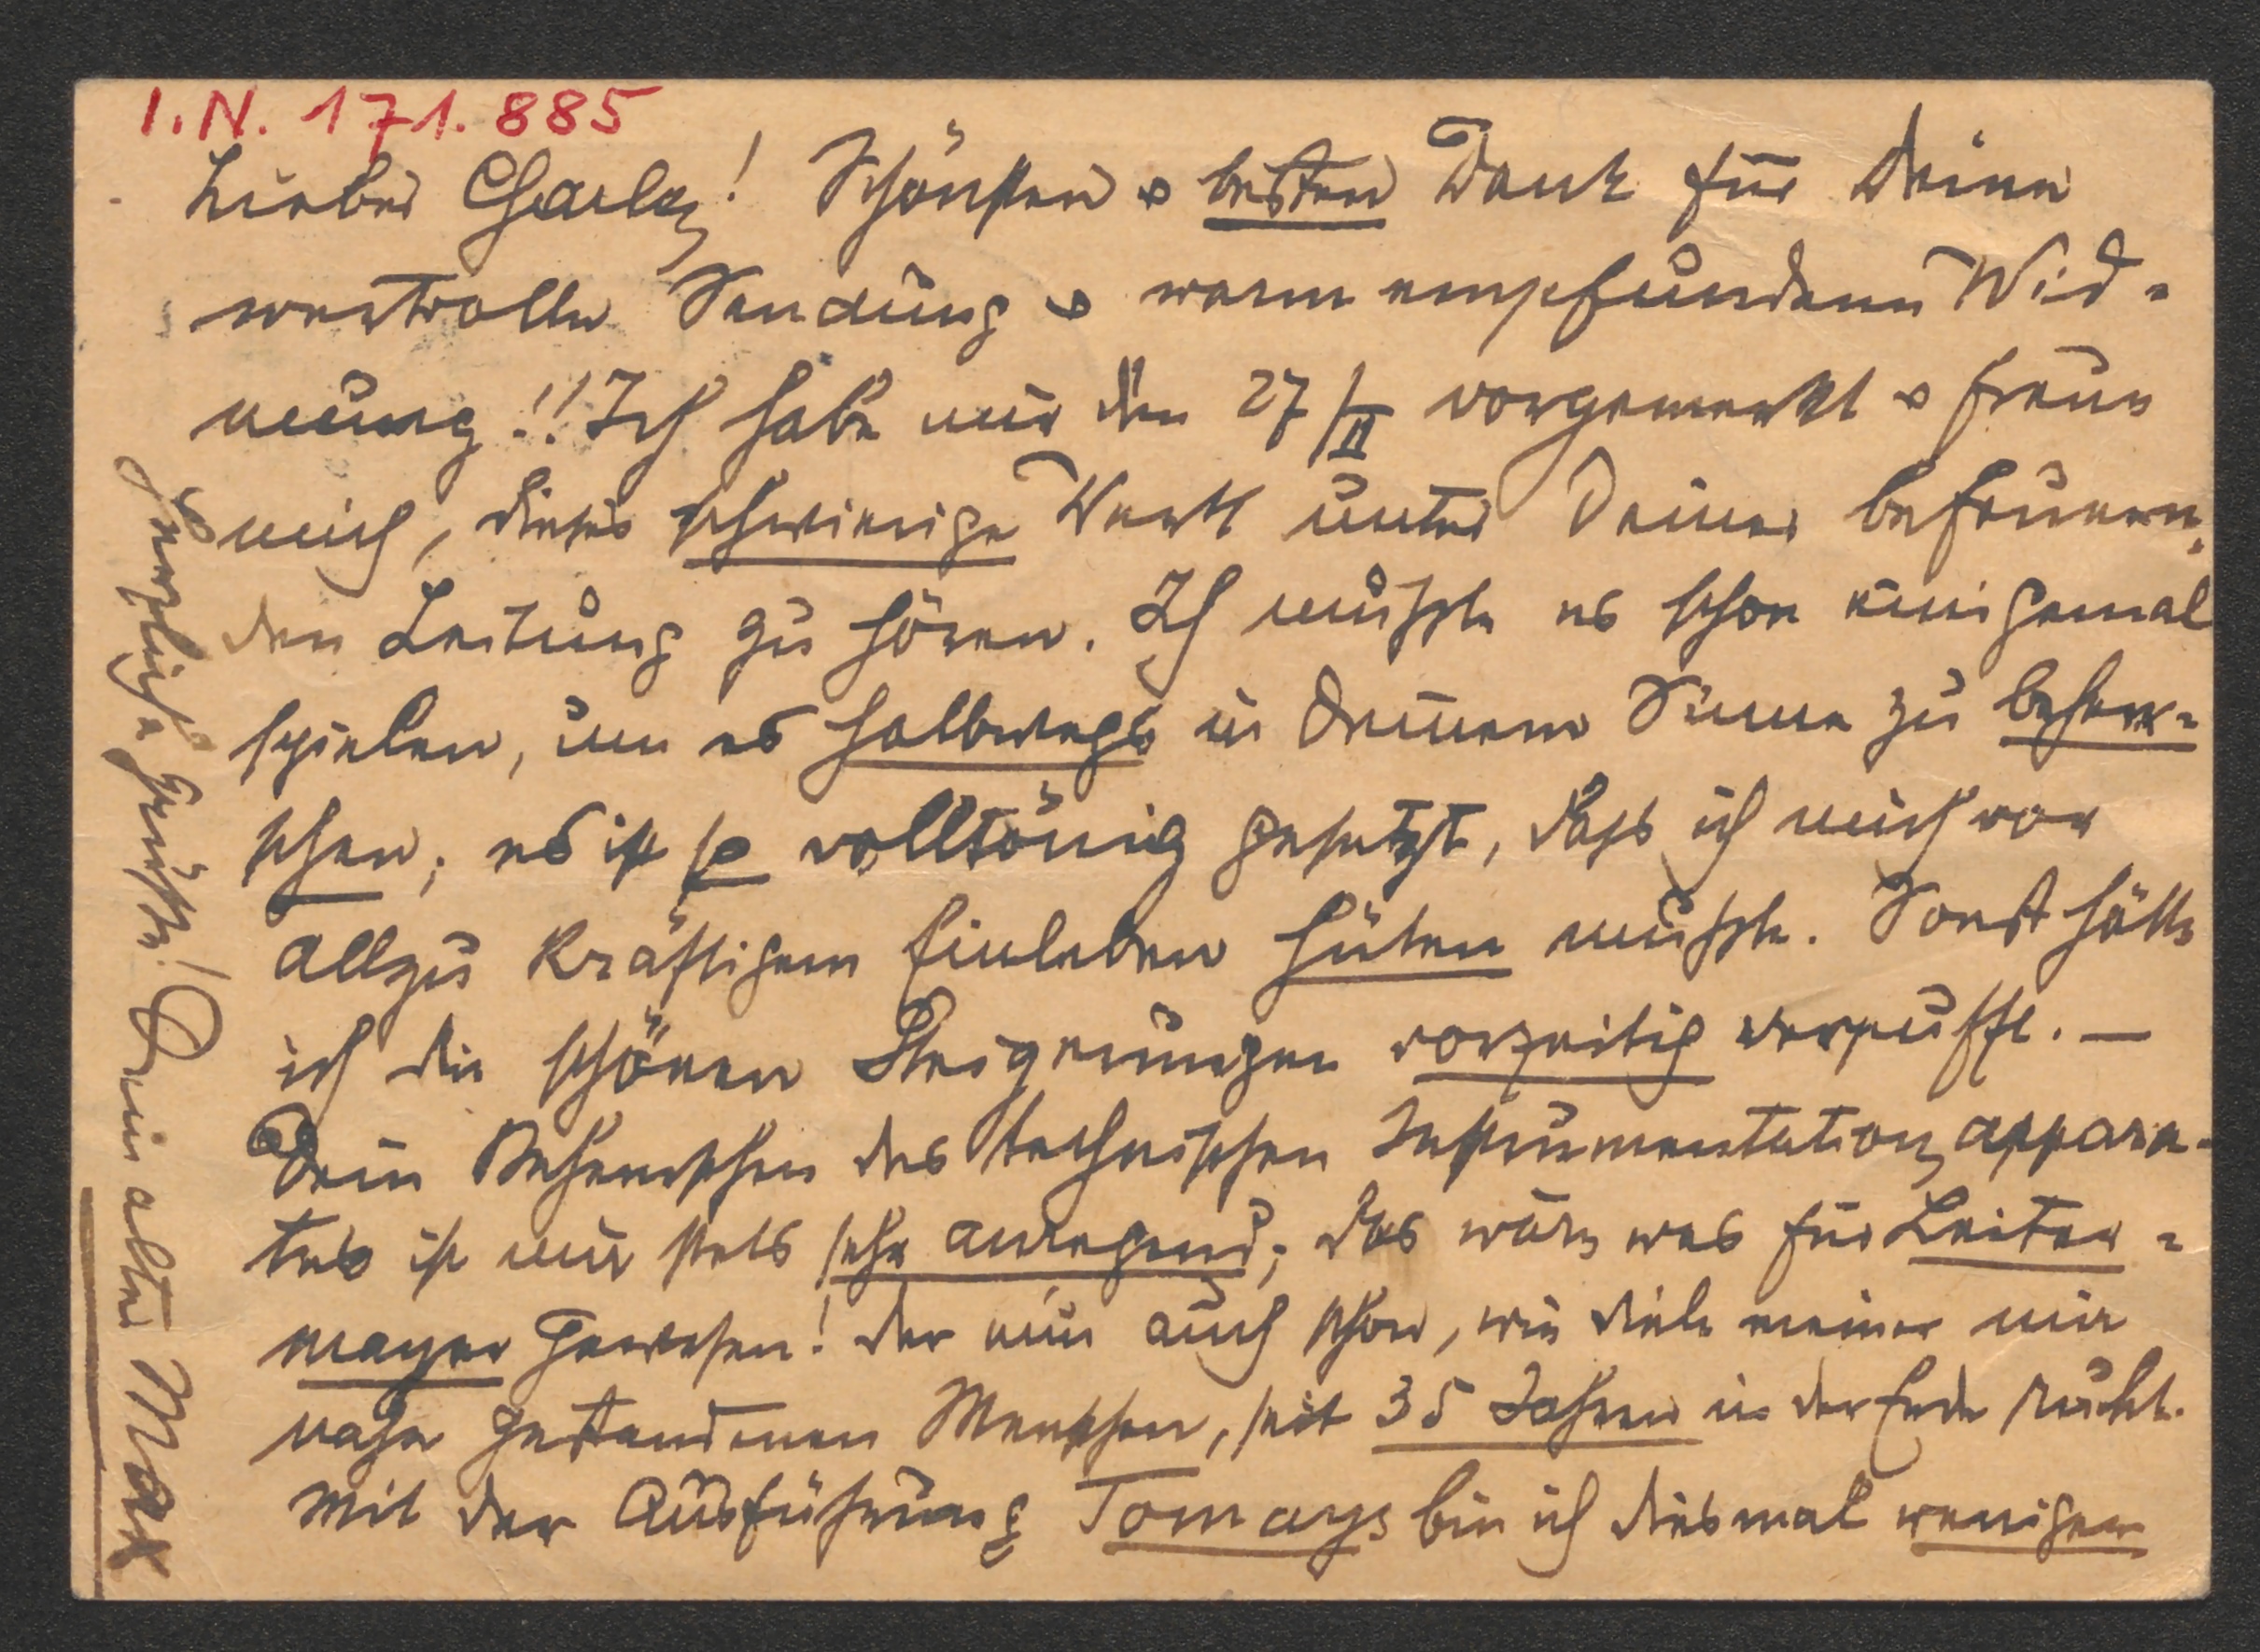 I.N. 171.885
Lieber Charles! Schönsten & besten Dank für Deine
wertvolle Sendung & warm empfundene Wid-
mung!! Ich habe mir den 27/II vorgemerkt & freue
mich, dieses schwierige Werk unter Deiner befeuern-
den Leitung zu hören. Ich mußte es schon einigemal
spielen, um es halbwegs in Deinem Sinne zu beherr-
schen; es ist so volltönig gesetzt, dass ich mich vor
allzu kräftigem Einleben hüten mußte. Sonst hätte
ich die schönen Steigerungen vorzeitig verpufft. —
Dein Beherrschen des technischen Instrumentationsappara-
tes ist mir stets sehr anregend; das wäre was für Leiter-
mayer gewesen! der nun auch schon, wie viele meiner mir
nahe gestandenen Menschen, seit 35 Jahren in der Erde ruht.
Mit der Ausführung Tomays bin ich diesmal weniger
Herzliche Grüße! Dein alter Max